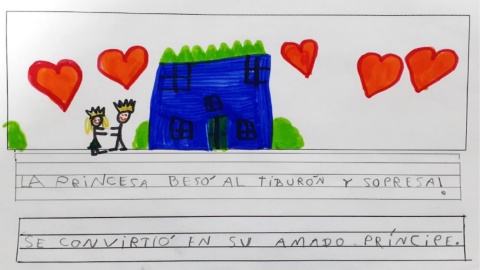 LA PRINCESA BESÓ AL TIBURÓN Y SOPRESA!
SE CONVIRTIÓ EN SU AMADO PRÍNCIPE.